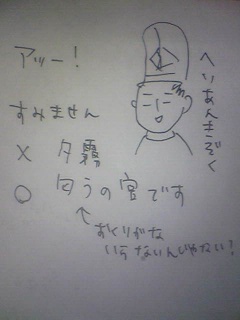 アッー!
すみません
× 夕霧
○ 匂うの宮です
↑
おくりがな
いらないんじゃない?
へいあんきぞく